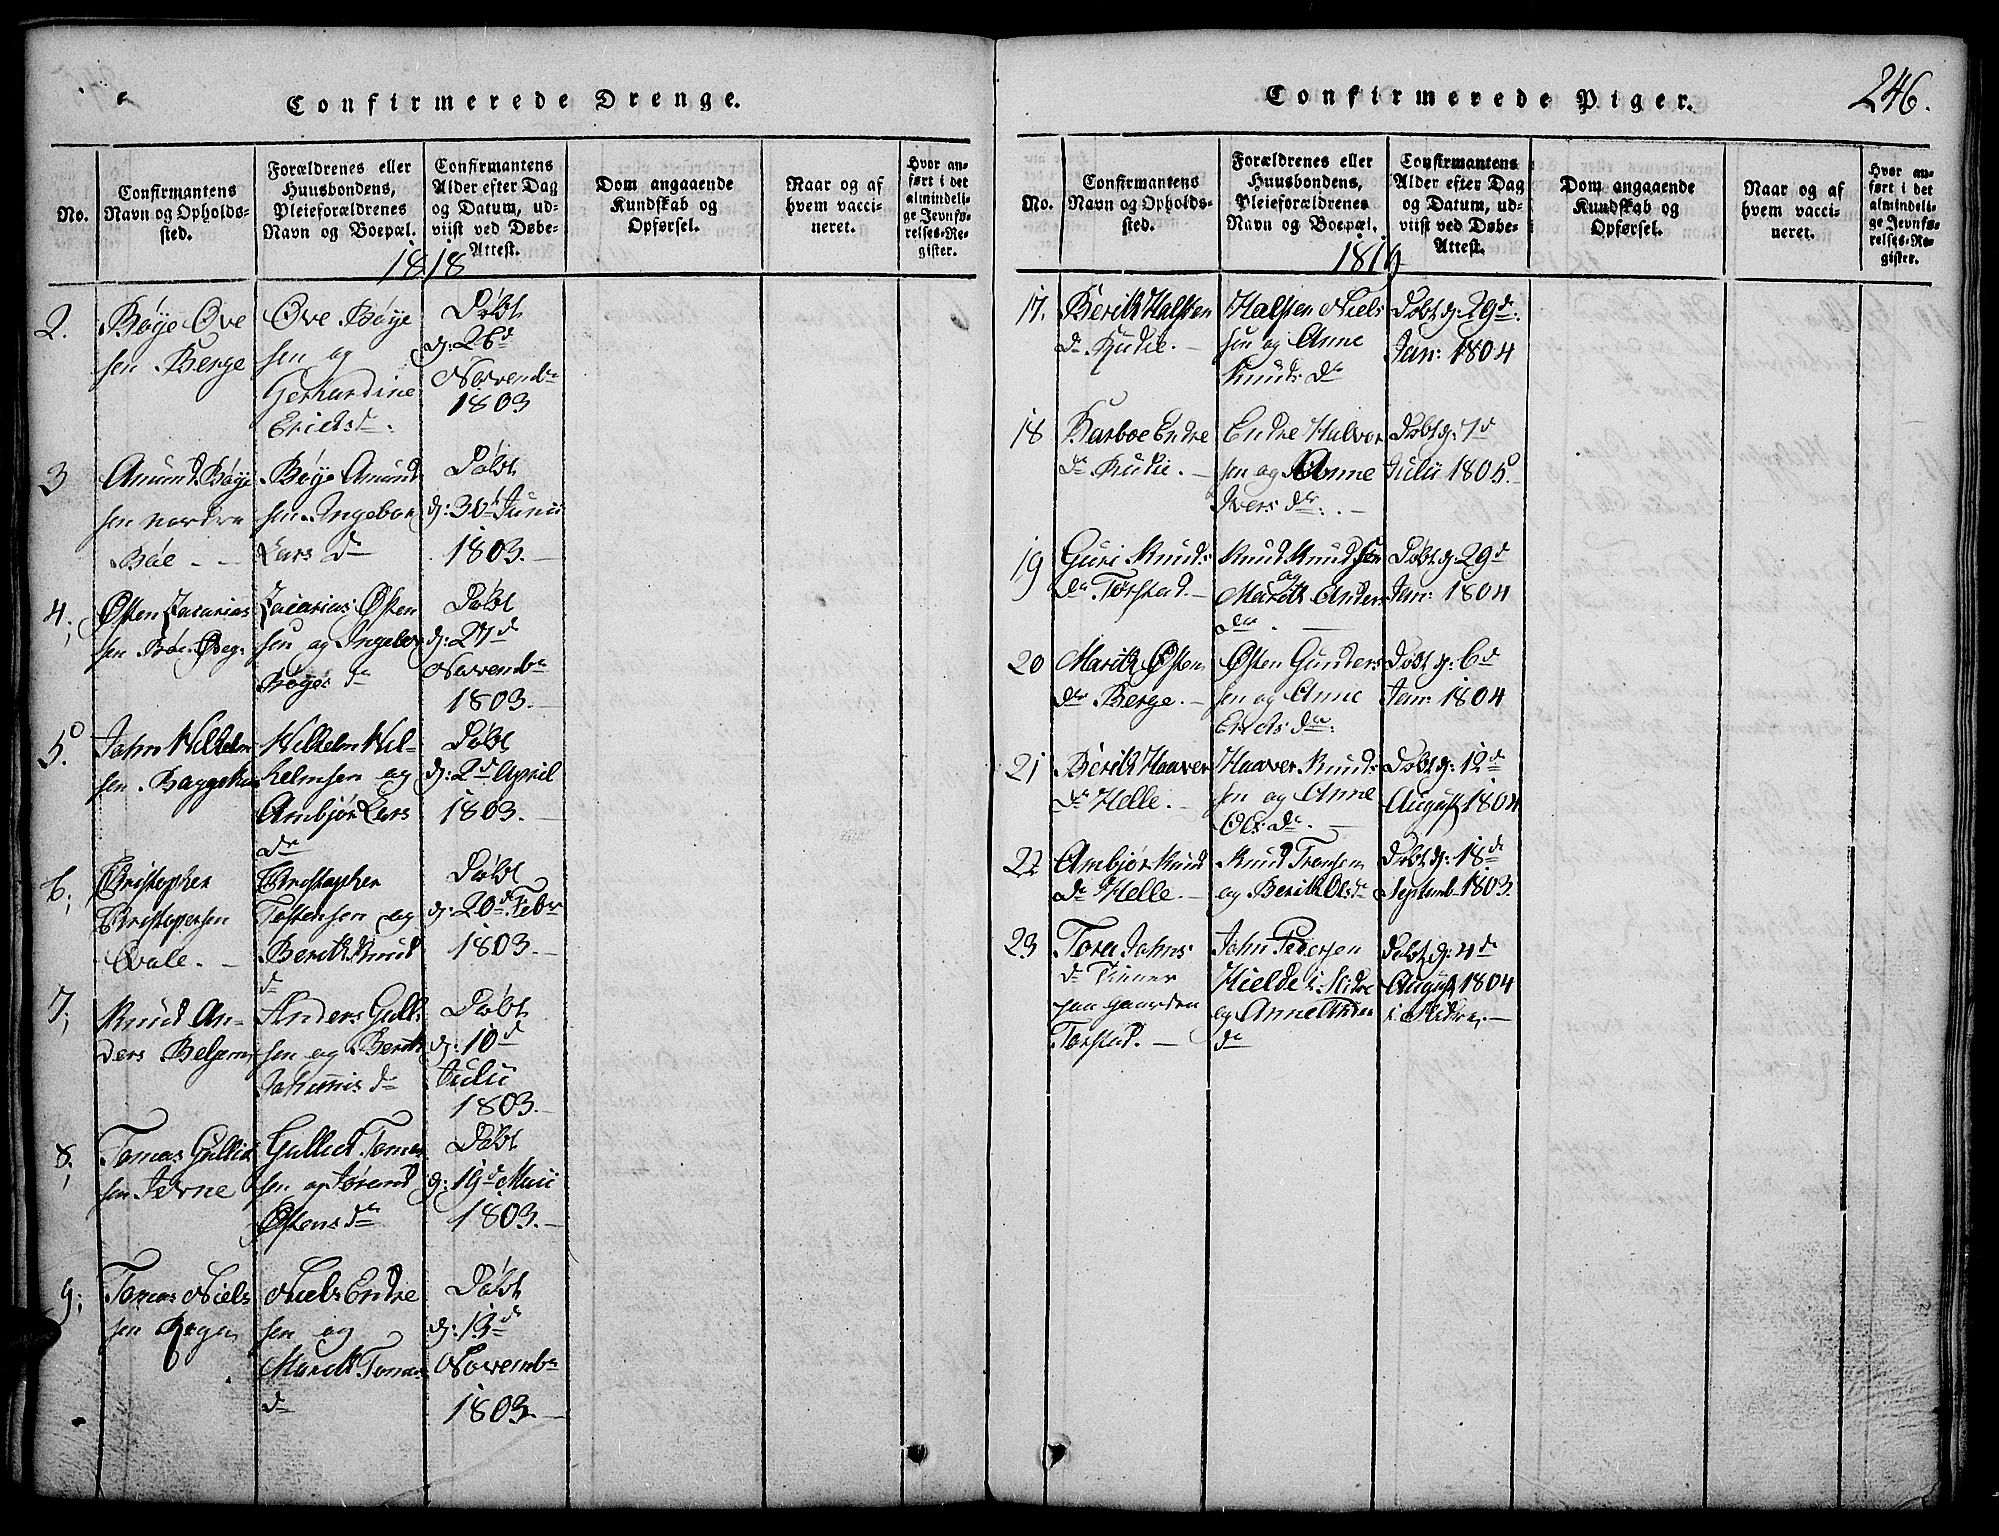 Confirmerede Drenge.
No.
Confirmantens
Navn og Opholds-
sted.
Forældrenes eller
Huusbondens,
Pleieforældrenes
Navn og Boepæl.
Confirmantens
Alder efter Dag
og Datum, ud-
viist ved Døbe-
Attest.
Dom angaaende
Kundskab og
Opførsel.
Naar og af
hvem vacci-
neret.
Hvor an-
ført i det
almindeli-
ge Jevnfø-
relses-Re-
gister.
1818
2.
Bøye Ove
sen Berge
Ove Bøye
sen og
Gerhardine
Ericks dr.
Døbt
d: 26d
Novembr
1803
3
Amund Bøye
sen nordre
Bøe - -
Bøye Amund
sen Ingebor
Lars dr
Døbt
d: 30d Junii
1803. -
4;
Østen Zacarias
sen Bøe
Zacarias Østen
sen og Ingebor
Bøyes dr
Døbt
d: 27d
Novembr
1803. -
5.
John Wilhelm
sen
Wilhelm Wil-
helmsen og
Ambjør Lars
dr
Døbt
d: 2d April
1803. -
6;
Christopher
Christophersen
Qvale. -
Christopher
Tostensen og
Berith Knud
dr
Døbt
d: 20d Febr
1803. -
7;
Knud An-
ders
Anders Gull
sen og Berith
Johannis dr
Døbt
d: 10d
Julii
1803. -
8;
Tomas Gullick
sen Jevne
Gullick Tomas
sen og Jørand
Østens dr
Døbt
d: 19d Maii
1803. -
9;
Tomas Niels
sen
Niels Endre
sen og
Marith Tomas
dr
Døbt
d: 13d
Novembr
1803. -
Confirmerede Piger.
246.
No.
Confirmantens
Navn og Opholds-
sted.
Forældrenes eller
Huusbondens,
Pleieforældrenes
Navn og Boepæl.
Confirmantens
Alder efter Dag
og Datum, ud-
viist ved Døbe-
Attest.
Dom angaaende
Kundskab og
Opførsel.
Naar og af
hvem vacci-
neret.
Hvor an-
ført i det
almindeli-
ge Jevnfø-
relses-Re-
gister.
1819
17.
Berith Halsten
dr Kudie. -
Halsten Niels
sen og Anne
Knuds dr
Døbt d: 29d
Jan: 1804
18
Barboe Endre
dr Kudie. -
Endre Halvor
sen og Anne
Ivers dr. -
Døbt d: 7d
Julii 1805. -
19
Guri Knuds
dr Torstad. -
Knud Knudsen
og
Marith Anders
dr. -
Døbt d: 29d
Jan: 1804
20
Marith Østen
dr Berge. -
Østen Gunders
sen og Anne
Ericks dr.
Døbt d: 6d
Jan: 1804
21
Berith Haaver
dr Helle. -
Haaver Knud
sen og Anne
Ols dr. -
Døbt d: 12d
August 1804
22
Ambjør Knud
dr Helle. -
Knud Tronsen
og Berith Ols dr
Døbt d: 18d
Septemb 1803
23
Tora Johns
dr Tiener
paa gaarden
Torstad. -
John Pedersen
Hielde i Slidre
og Anne
dr
Døbt d: 4d
August 1804
i Slidre. -